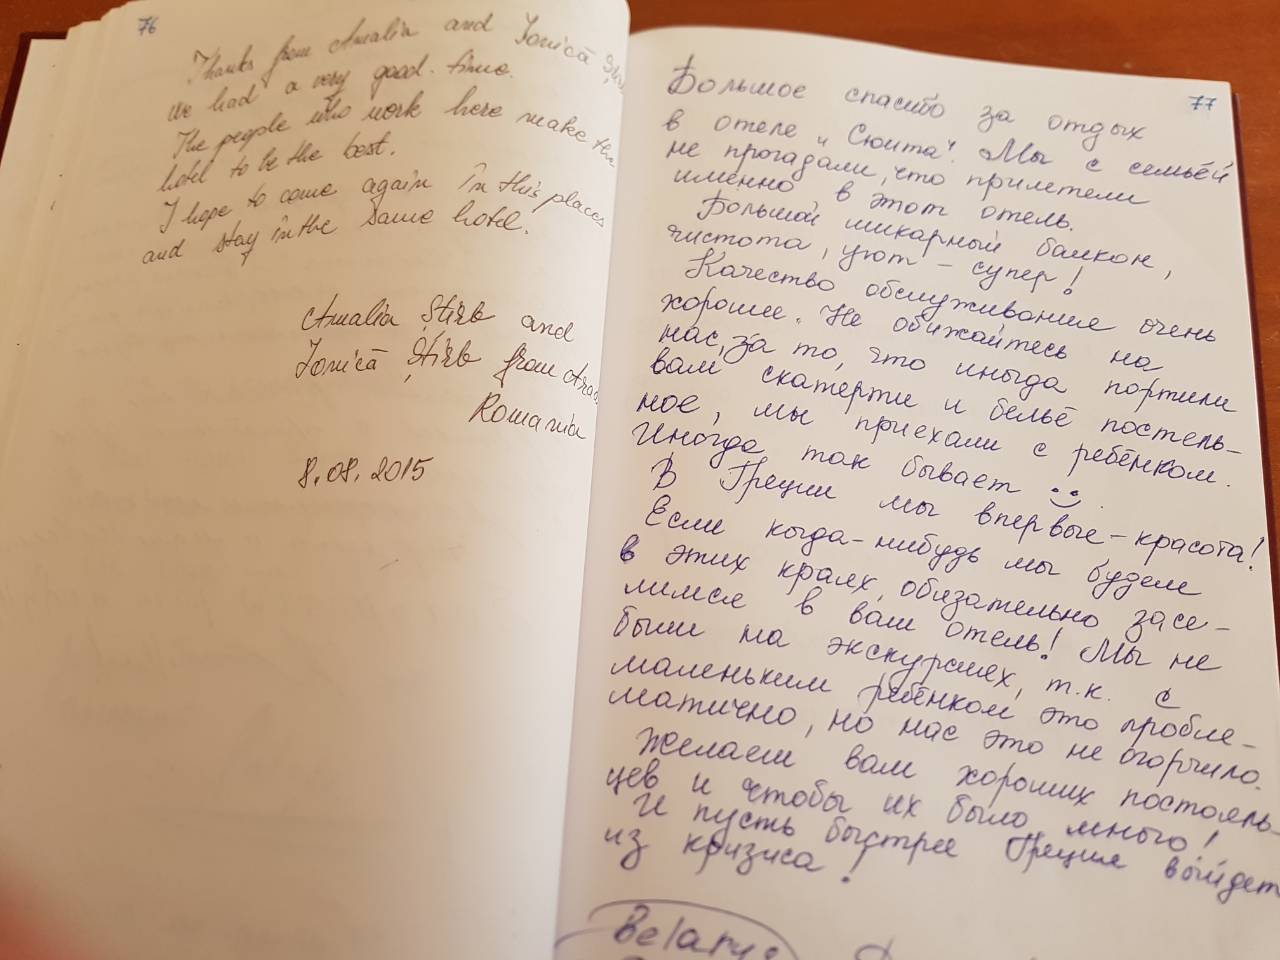 76
Thanks from Amalia and Ionică
we had a very good time.
The people who work here make the
hotel to be the best.
I hope to come again în this places
and stay în the same hotel.
Amalia Știrb and
Ionică Știrb from
Romania
8.08.2015
77
Большое спасибо за отдых
в отеле "Сюита". Мы с семьёй
не прогадали, что прилетели
именно в этот отель.
Большой шикарный балкон,
чистота, уют - супер!
Качество обслуживания очень
хорошее. Не обижайтесь на
нас, за то, что иногда портили
вам скатерти и бельё постель-
ное, мы приехали с ребёнком.
Иногда так бывает
В Греции мы впервые - красота!
Если когда-нибудь мы будем
в этих краях, обязательно засе-
лимся в ваш отель! Мы не
были на экскурсиях, т.к. с
маленьким ребёнком это пробле-
матично, но нас это не огорчило.
Желаем вам хороших постояль-
цев и чтобы их было много!
И пусть быстрее Греция выйдет
из кризиса!